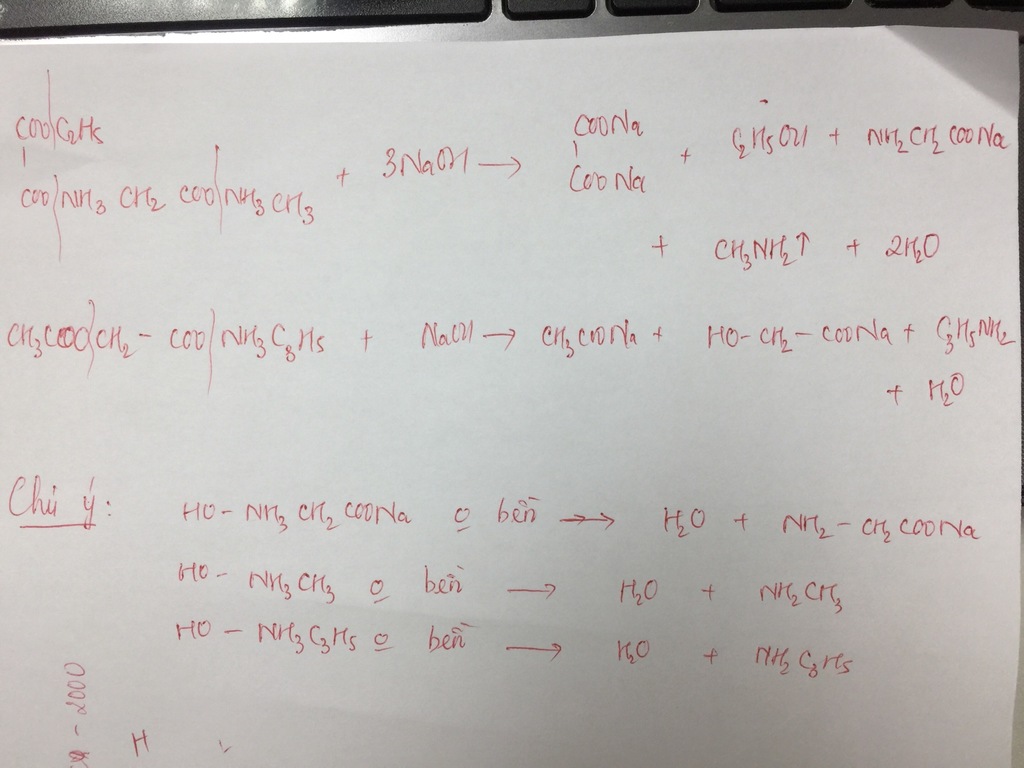 COO|C2H5
COO|NH3 CH2 COO|NH3 CH3 + 3NaOH → COONa
|
COONa + C2H5OH + NH2CH2COONa
+ CH3NH2↑ + 2H2O
CH3COO|CH2 - COO|NH3C3H5 + NaOH → CH3COONa + HO-CH2-COONa + C3H5NH2
+ H2O
Chú ý:
HO - NH3 CH2 COONa o bền →→ H2O + NH2 - CH2 COONa
HO - NH3CH3 o bền → H2O + NH2CH3
HO - NH3C3H5 o bền → H2O + NH2 C3H5
- 2000
H